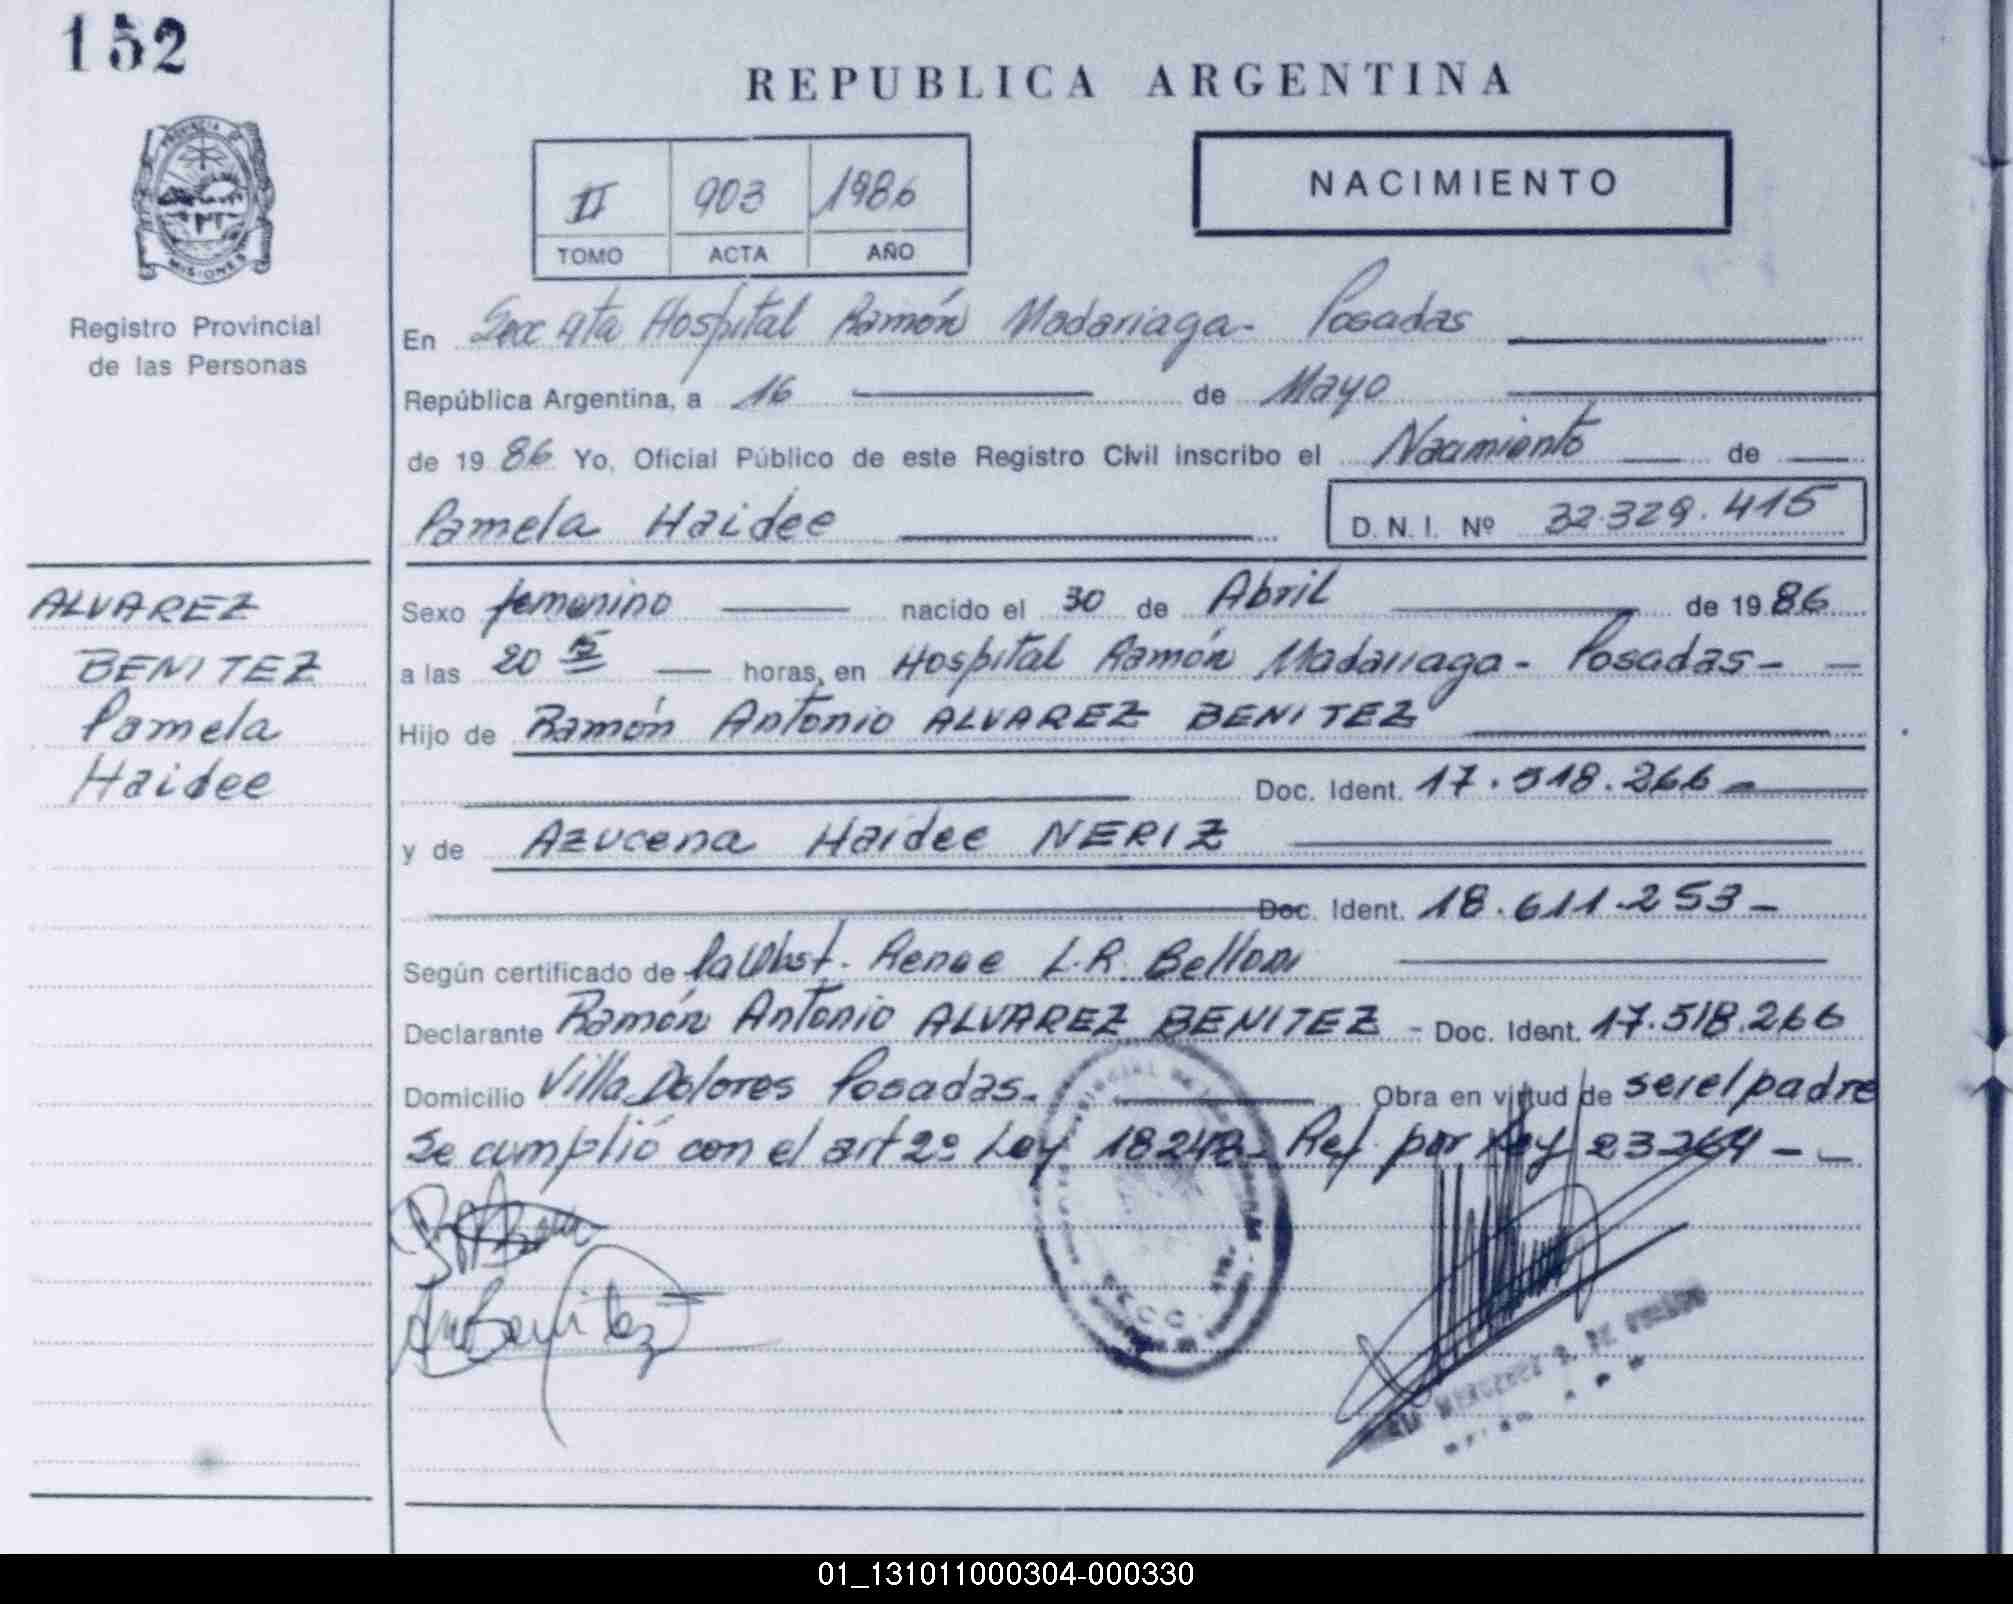 152
REPUBLICA ARGENTINA
PROVINCIA DE
MISIONES
Registro Provincial
de las Personas
II 903 1986
TOMO ACTA AÑO
NACIMIENTO
En Secc 4ta Hospital Ramón Madariaga - Posadas
República Argentina, a 16 de Mayo
de 1986 Yo, Oficial Público de este Registro Civil inscribo el Nacimiento de
Pamela Haidee D.N.I. Nº 32.329.415
ALVAREZ
BENITEZ
Pamela
Haidee
Sexo femenino nacido el 30 de Abril de 1986
a las 20 horas, en Hospital Ramón Madariaga - Posadas -
Hijo de Ramón Antonio ALVAREZ BENITEZ
Doc. Ident. 17.518.266
y de Azucena Haidee NERIZ
Doc. Ident. 18.611.253 -
Según certificado de Renee L.R. Bellon
Declarante Ramón Antonio ALVAREZ BENITEZ - Doc. Ident. 17.518.266
Domicilio Villa Dolores Posadas. Obra en virtud de ser el padre
Se cumplió con el art 2º Ley 18248 - Ref. por Ley 23264 - -
01_131011000304-000330